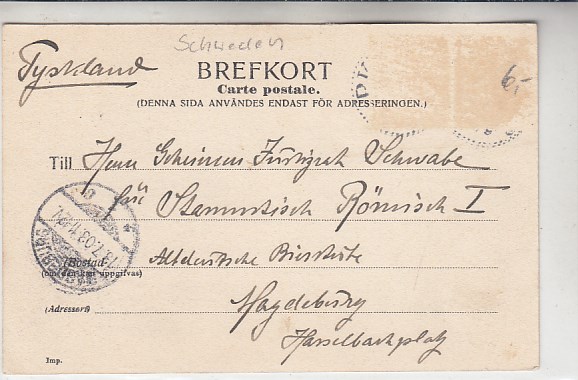 Schweden
Tyskland
BREFKORT
6,-
Carte postale.
(DENNA SIDA ANVÄNDES ENDAST FÖR ADRESSERINGEN.)
Till Herrn Geheimen Justizrat Schwabe
für Stammtisch Römisch I
Altdeutsche Bierstube
(Bostad
(om den är känt uppgifvas)
Magdeburg
(Adressort)
Hasselbachplatz
Imp.